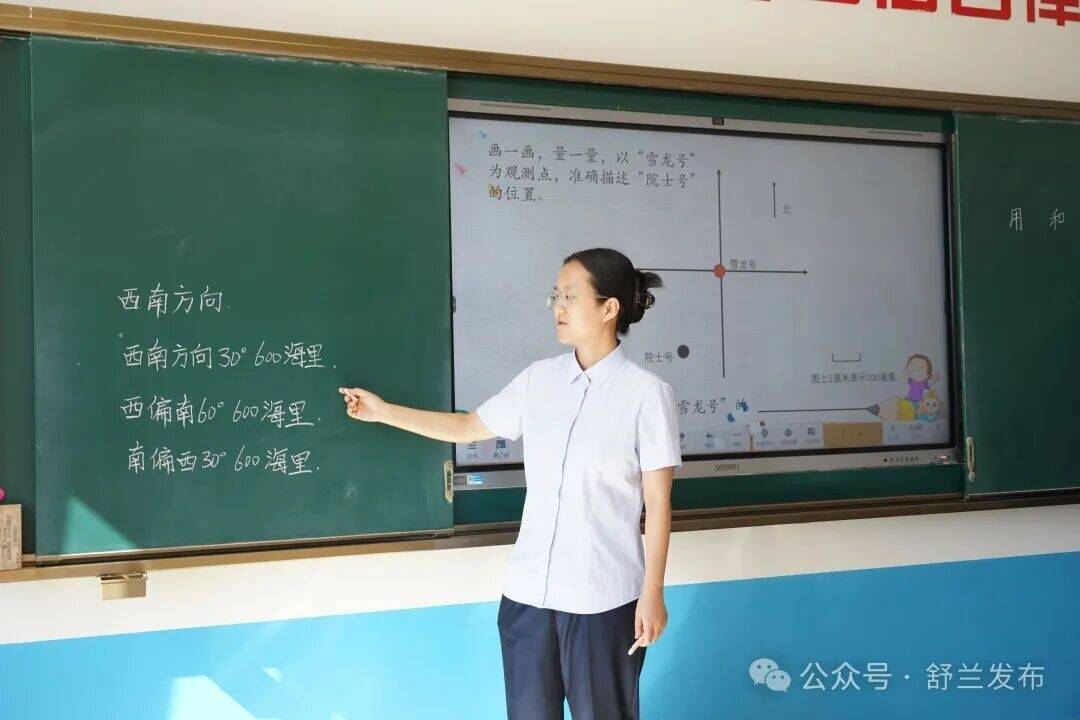 西南方向.
西南方向30° 600海里.
西偏南60° 600海里.
南偏西30° 600海里.
画一画，量一量，以“雪龙号”
为观测点，准确描述“院士号”
的位置。
北
雪龙号
院士号
图上1厘米表示200海里
雪龙号”的
seewo
用 和
公众号·舒兰发布